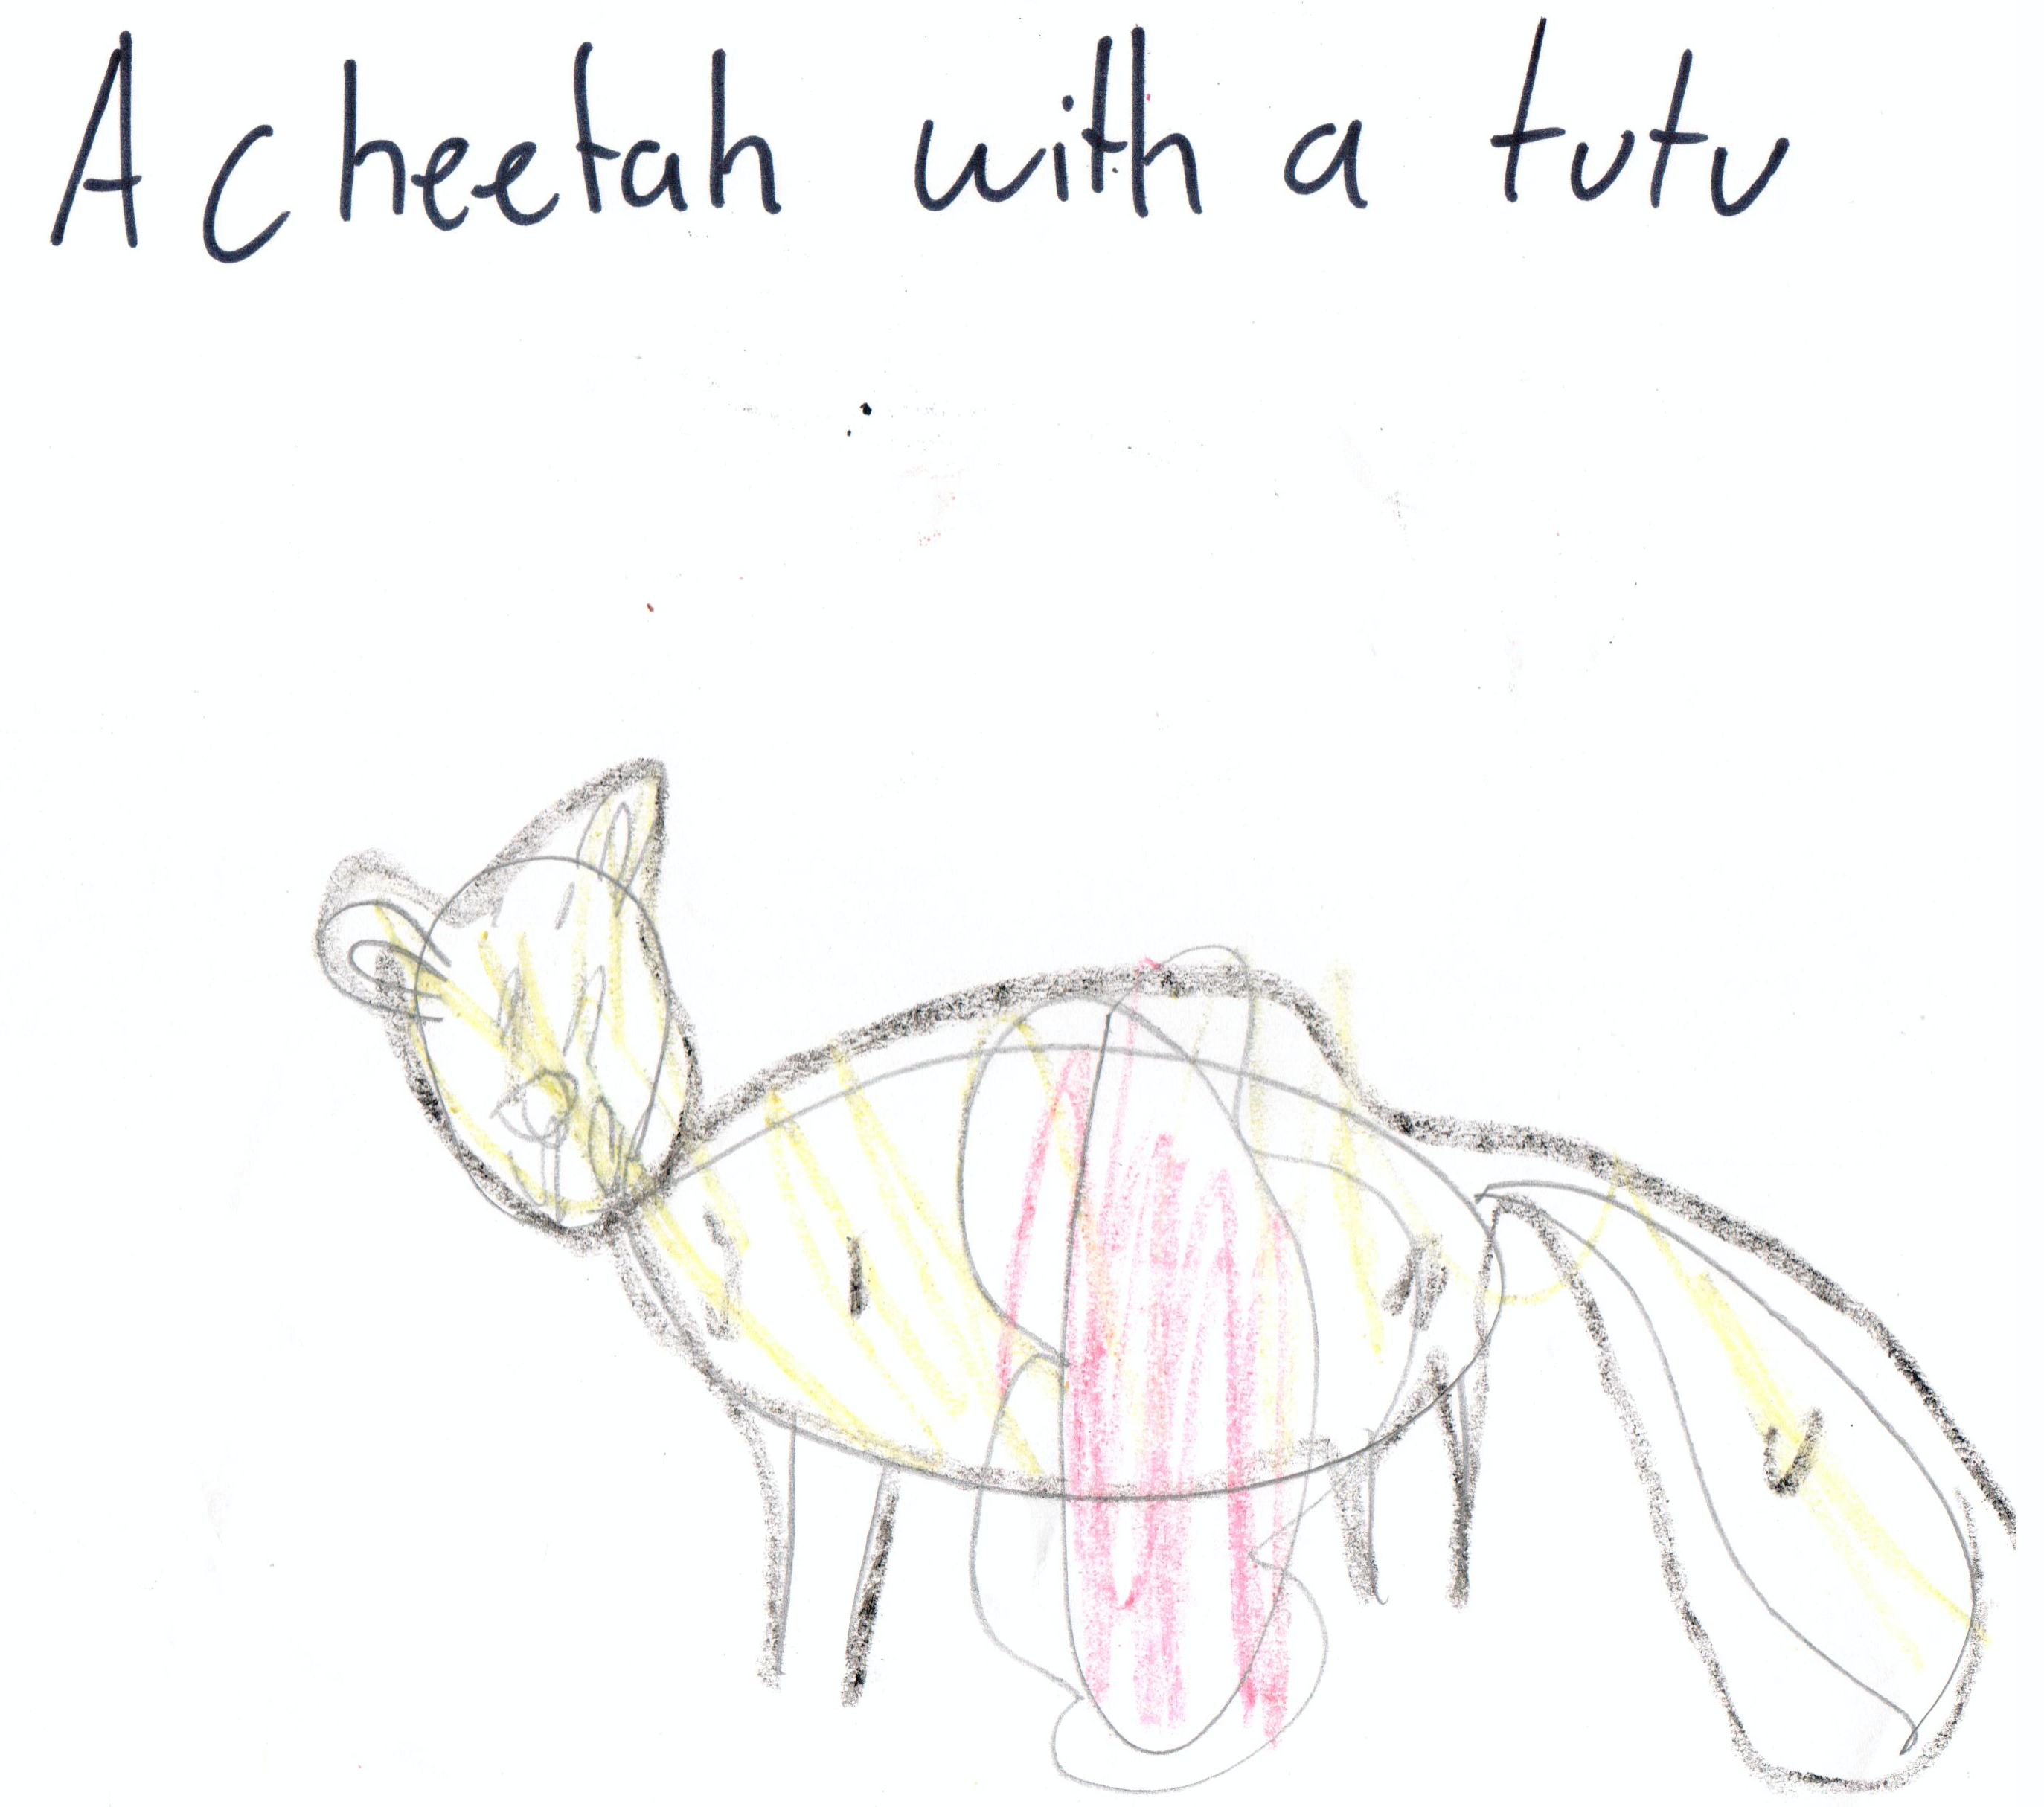 A cheetah with a tutu